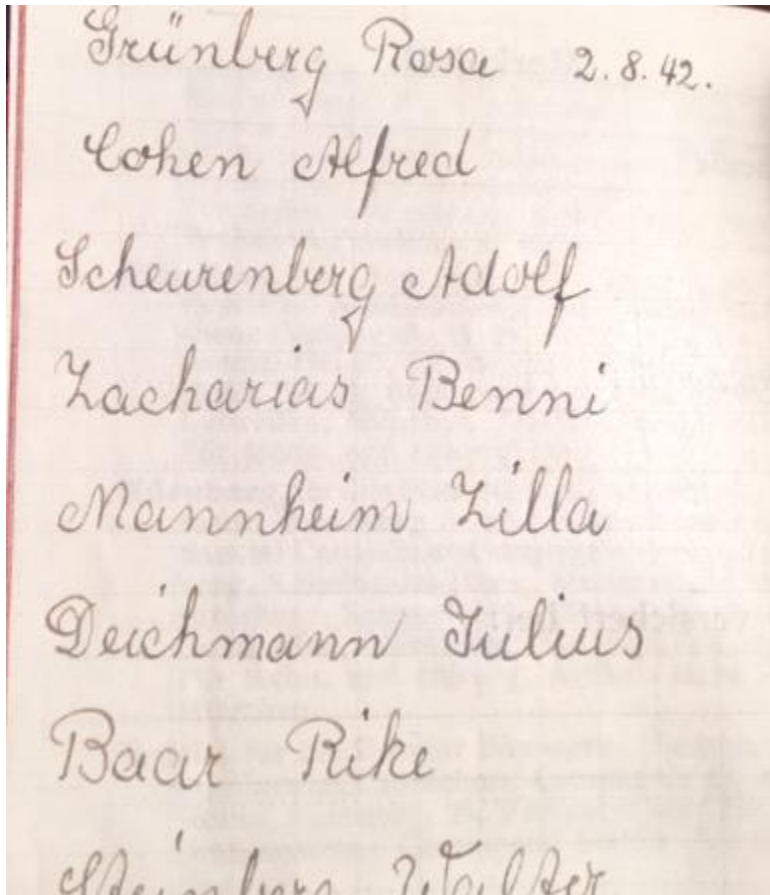 Grünberg Rosa 2.8.42.
Cohen Alfred
Scheurenberg Adolf
Zacharias Benni
Mannheim Zilla
Deichmann Julius
Baar Rike
Steinberg Walter